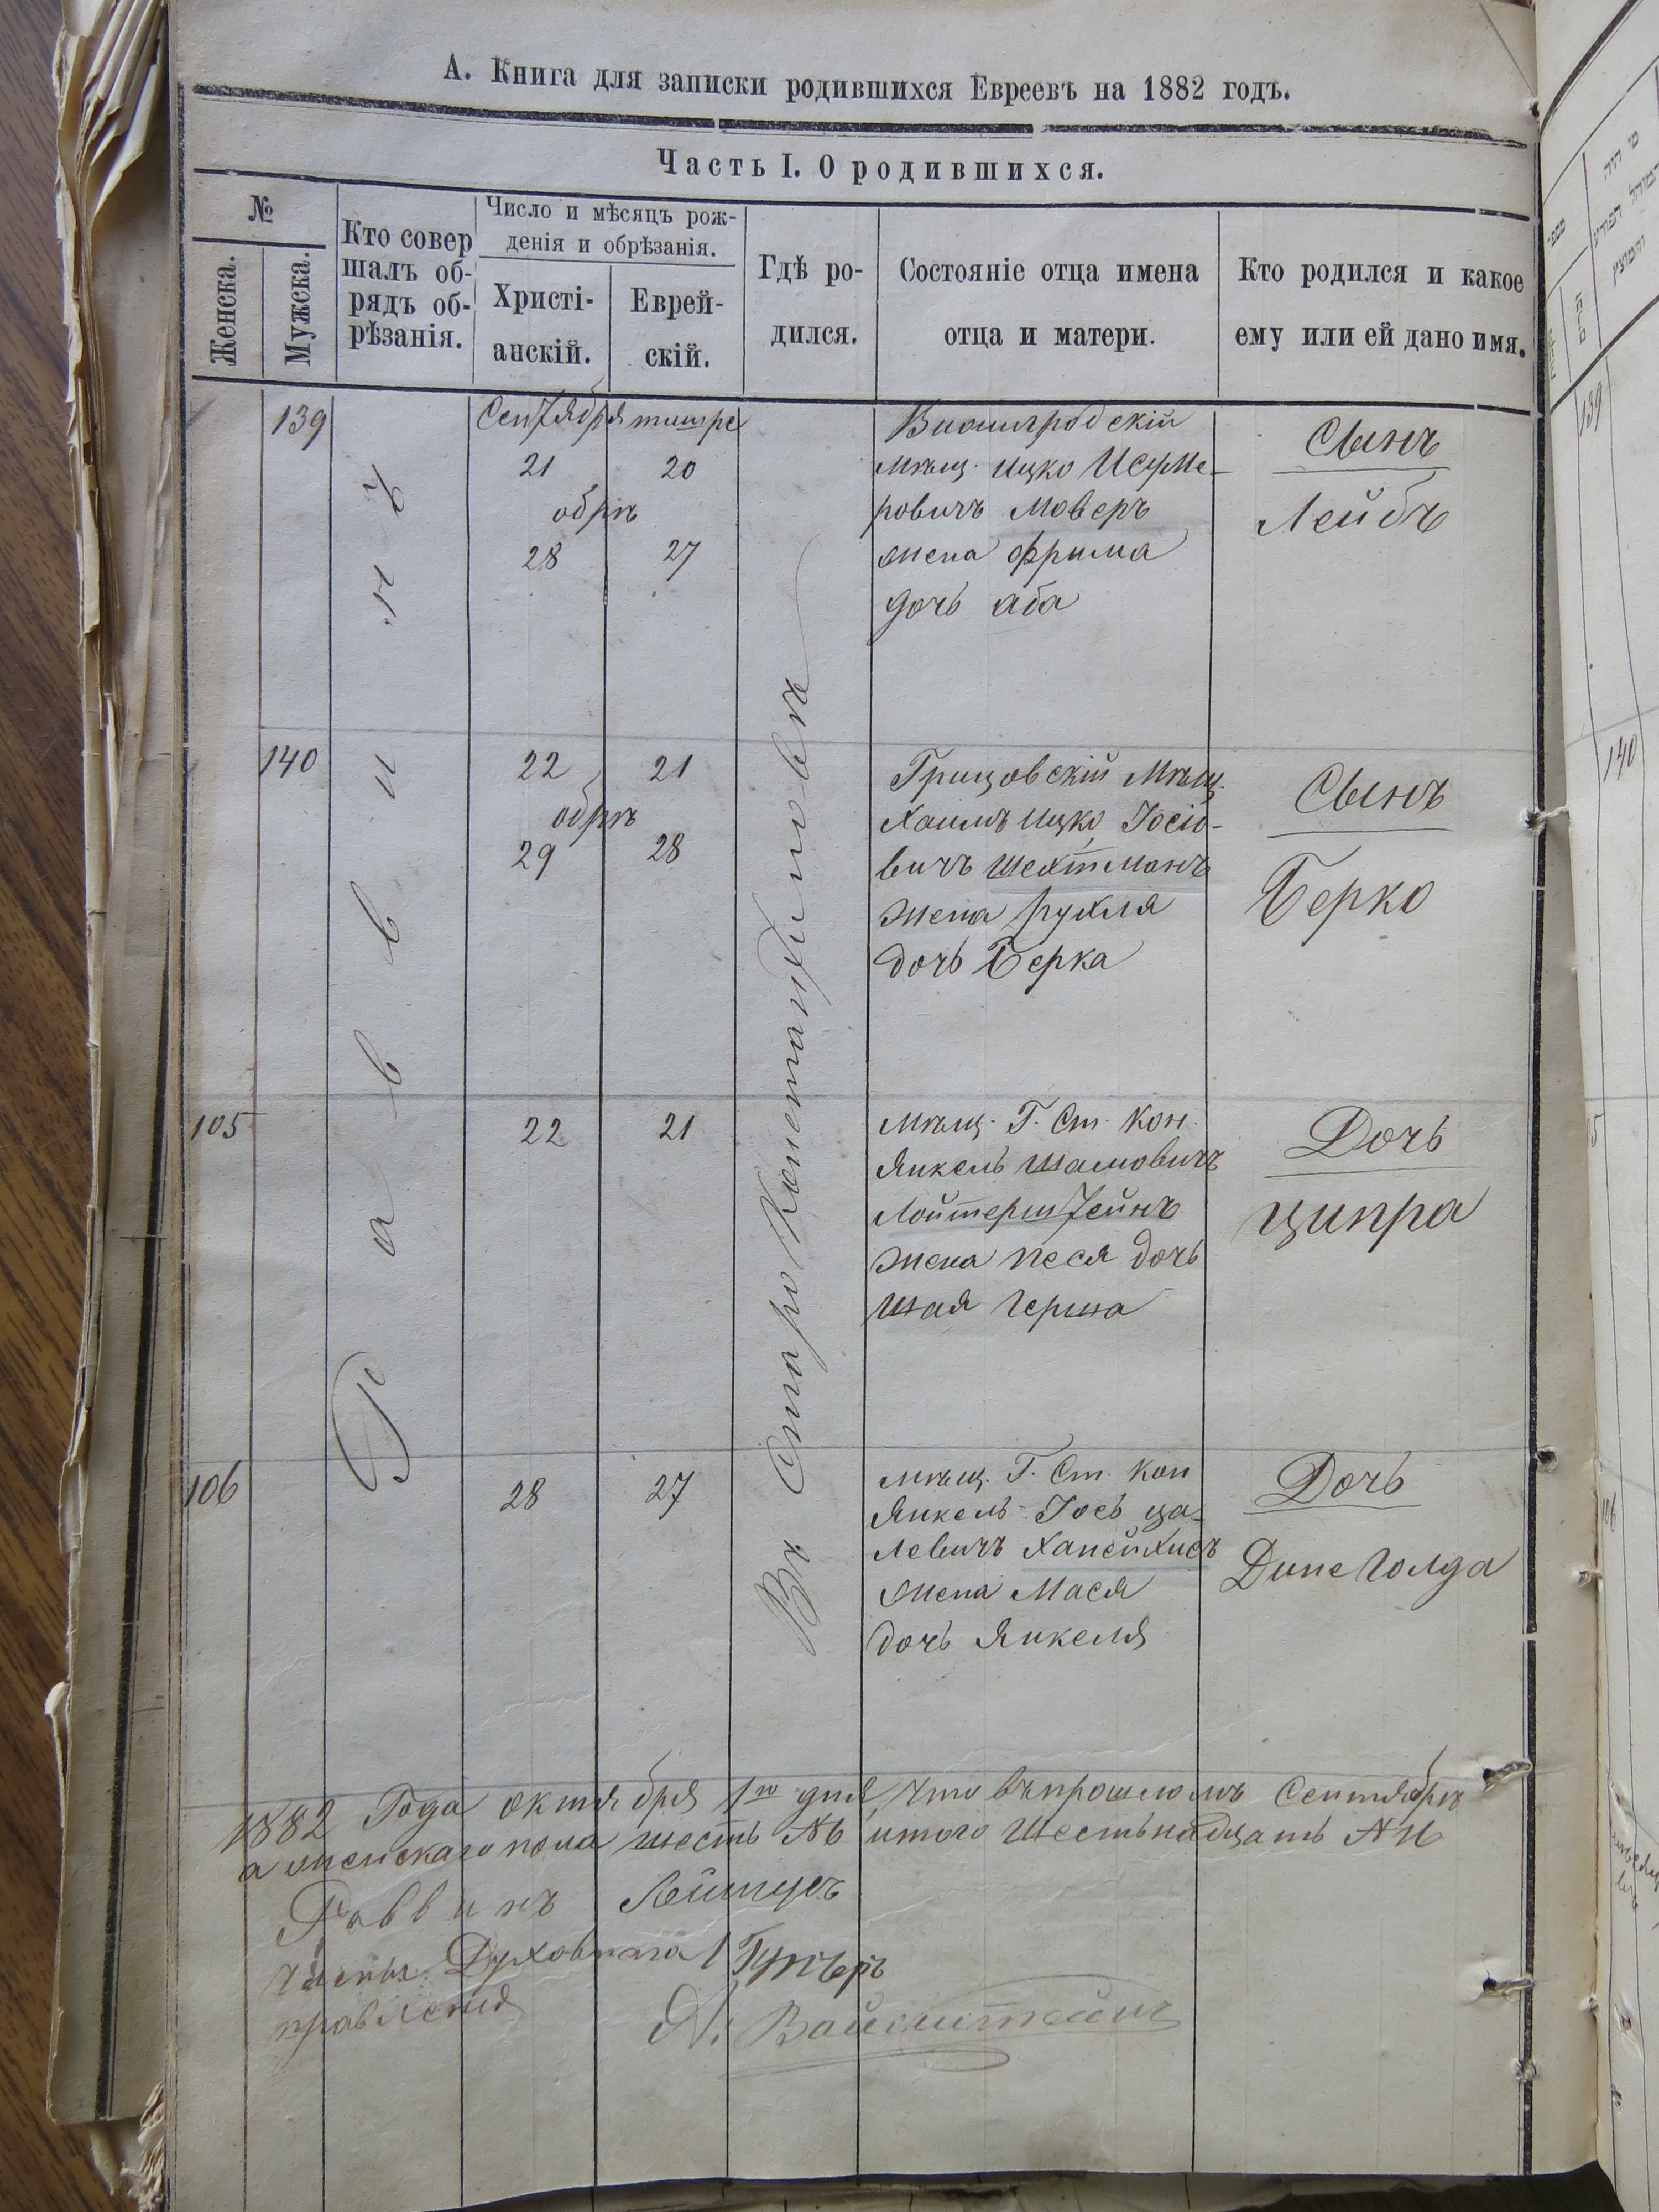 А. Книга для записки родившихся Евреевъ на 1882 годъ.
Часть I. О родившихся.
№
Женска.
Мужска.
Кто совер
шалъ об-
рядъ об-
рѣзанія.
Число и мѣсяцъ рож-
денія и обрѣзанія.
Христі-
анскій.
Еврей-
скій.
Гдѣ ро-
дился.
Состояніе отца имена
отца и матери.
Кто родился и какое
ему или ей дано имя.
Раввинъ
Въ Старо Константиновѣ
139
Сентября тишре
21 20
обрѣ
28 27
мѣщ. Ицко
ровичъ Моверъ
жена Фрима
дочь Аба
Сынъ
Лейбъ
140
22 21
обрѣ
29 28
Грицовскій Мѣщ.
Хаимъ Ицко Іосіо-
вичъ Шехтманъ
жена Рухля
дочь Берка
Сынъ
Берко
105
22 21
Мѣщ. Г. Ст. Кон.
Янкель Шамовичъ
Лойтерштейнъ
жена Песя дочь
Шая Герша
Дочь
Ципра
106
28 27
мѣщ. Г. Ст. Кон
Янкель-Іось Ца-
левичъ
жена Мася
дочь Янкеля
Дочь
Дине Голда
1882 Года октября 1го дня, что въ прошломъ Сентябрѣ
а женскаго пола шесть №6 итого Шестьнадцать №16
Раввинъ
Члены Духовнаго Гутеръ
правленія
Я. Вайнштейнъ
139
140
106